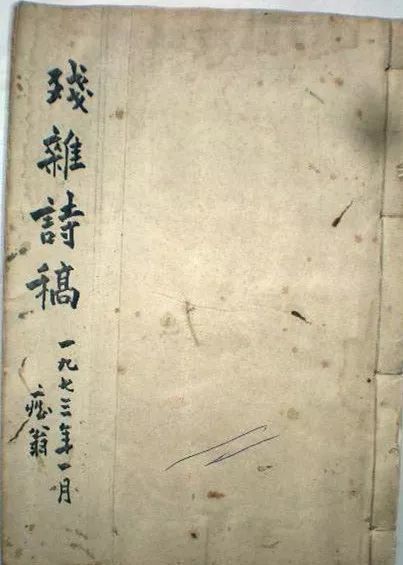 殘雜詩稿
一九七三年一月
翁